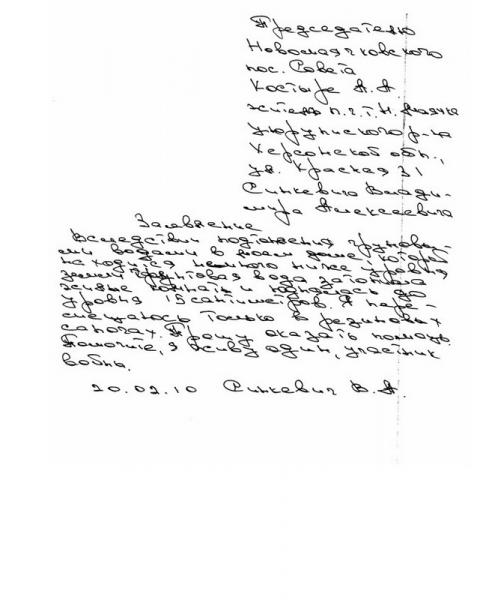 Председателю
Новомаячковского
пос. Совета
Костыре А. А.
жителя п.г.т. Н. Маячка
Цюрупинского р-на
Херсонской обл.,
ул. Красная 31
Синкевича Влади-
мира Алексеевича
Заявление
Вследствии подтопления грунтовы-
ми водами в моем доме который
находится немного ниже уровня
земли грунтовая вода затопила
жилые комнаты и поднялась до
уровня 15 сантиметров. Я пере-
мещаюсь только в резиновых
сапогах. Прошу оказать помощь.
Помогите, я живу один, участник
войны.
20.02.10 Синкевич В. А.